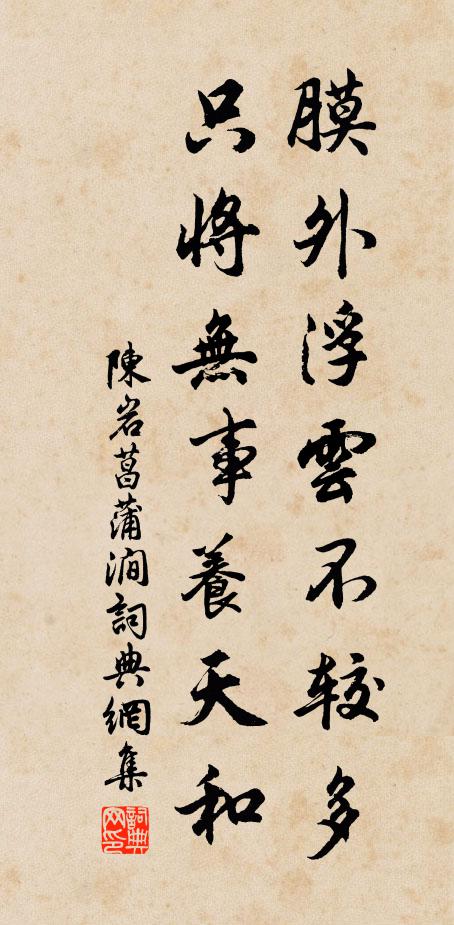 膜外浮雲不较多
只將無事養天和
陳岩菖蒲澗詞典網集
詞典网印